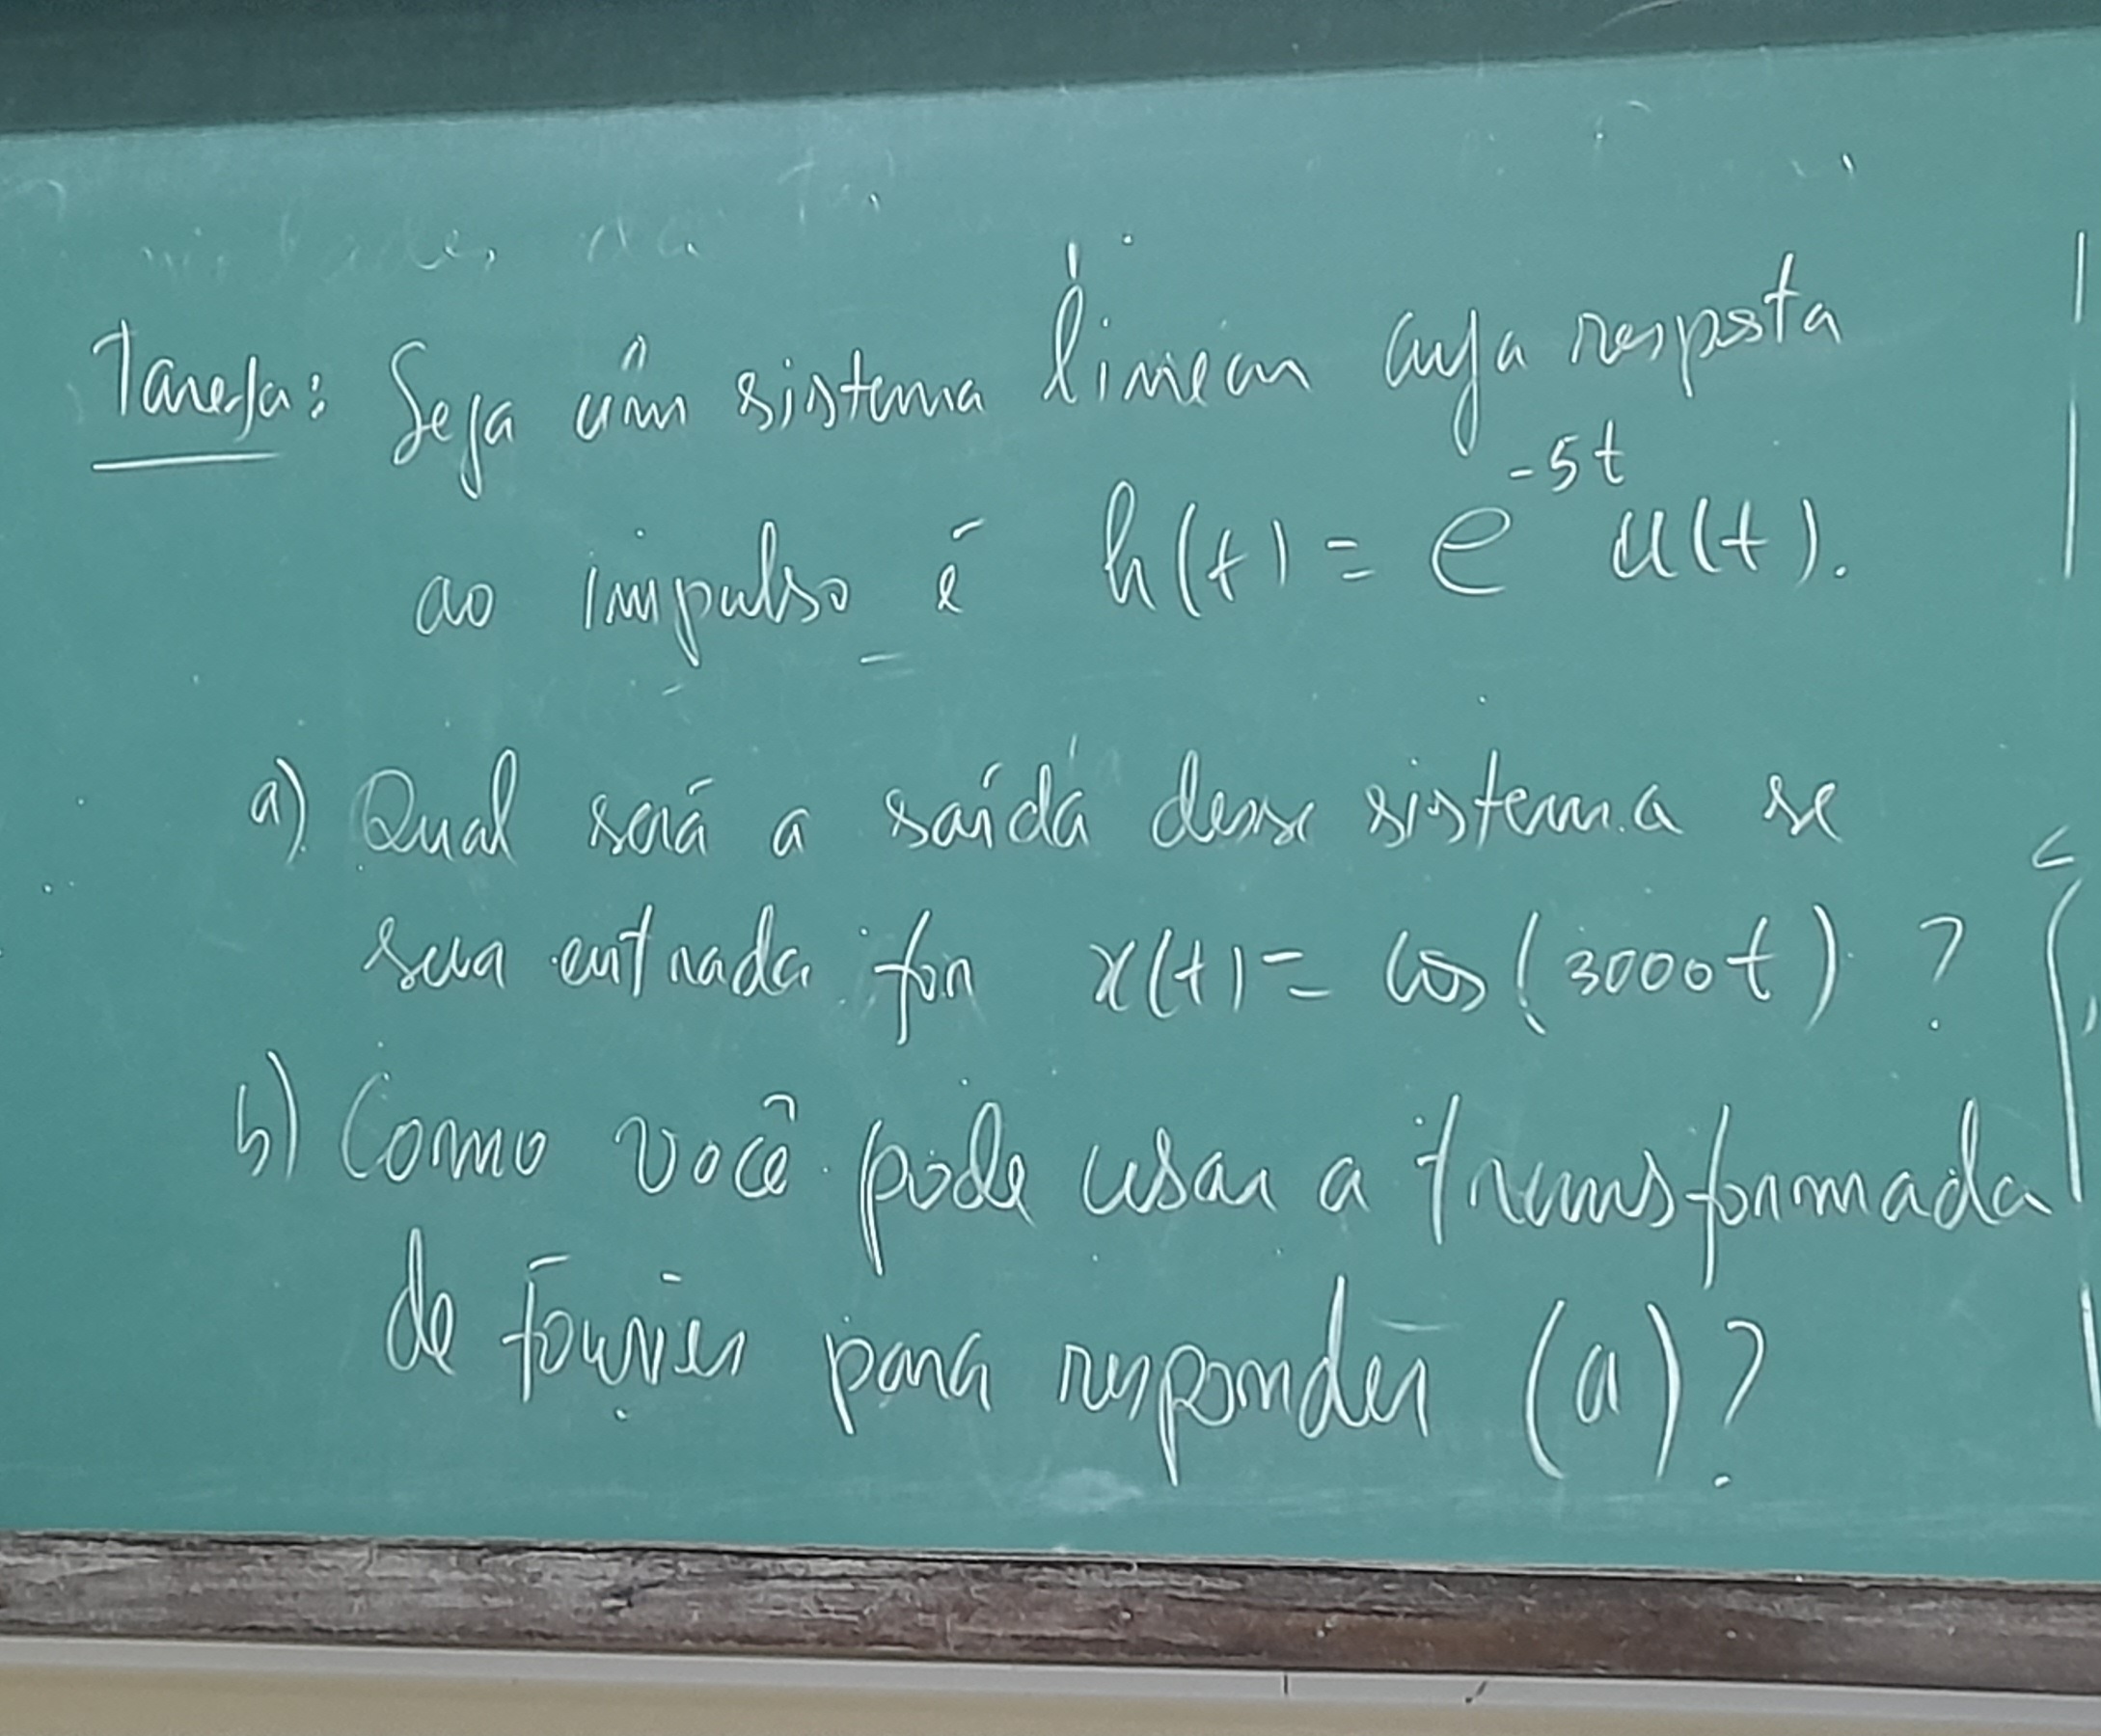 Tarefa: Seja um sistema linear cuja resposta
ao impulso é h(t) = e^{-5t} u(t).
a) Qual será a saída desse sistema se
sua entrada for x(t) = cos(3000t) ?
b) Como você pode usar a transformada
de Fourier para responder (a)?